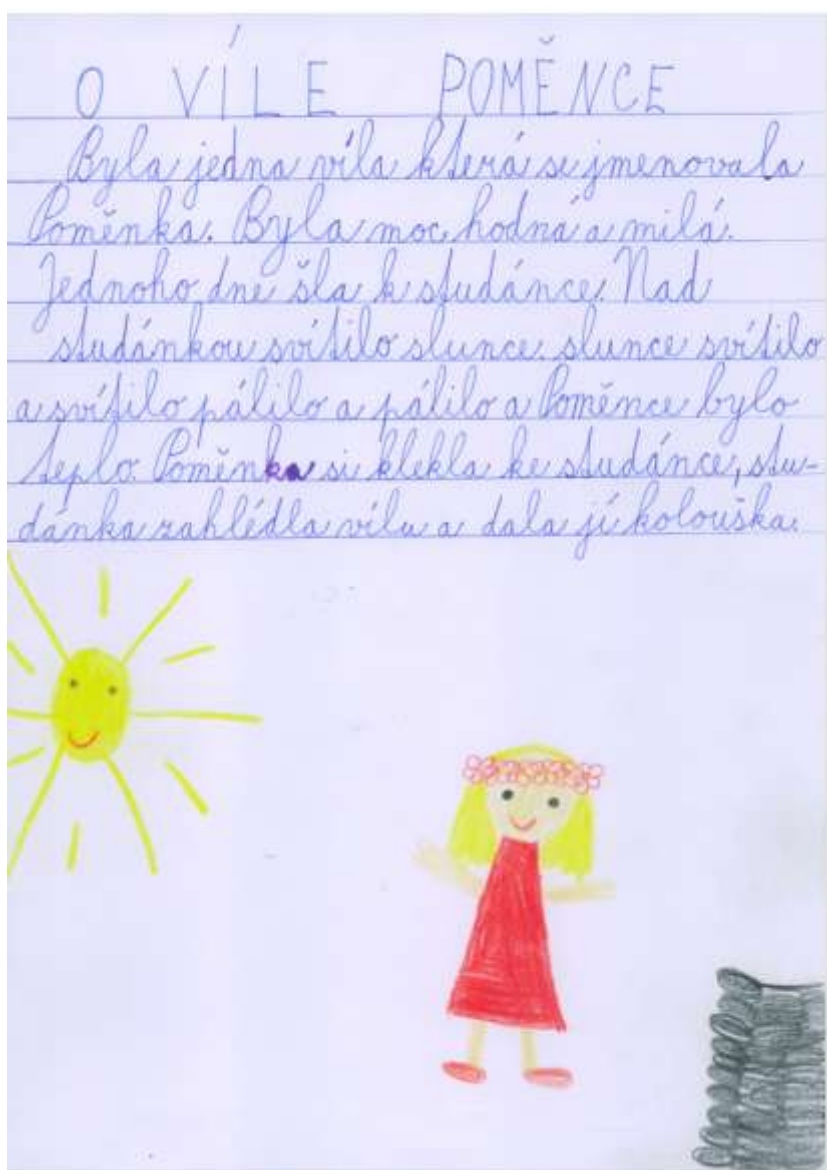 O VÍLE POMĚNCE
Byla jedna víla která se jmenovala
Poměnka. Byla moc hodná a milá.
Jednoho dne šla k studánce. Nad
studánkou svítilo slunce. slunce svítilo
a svítilo pálilo a pálilo a Poměnce bylo
teplo. Poměnka si klekla ke studánce, stu-
dánka zahlédla vílu a dala jí kolouška.